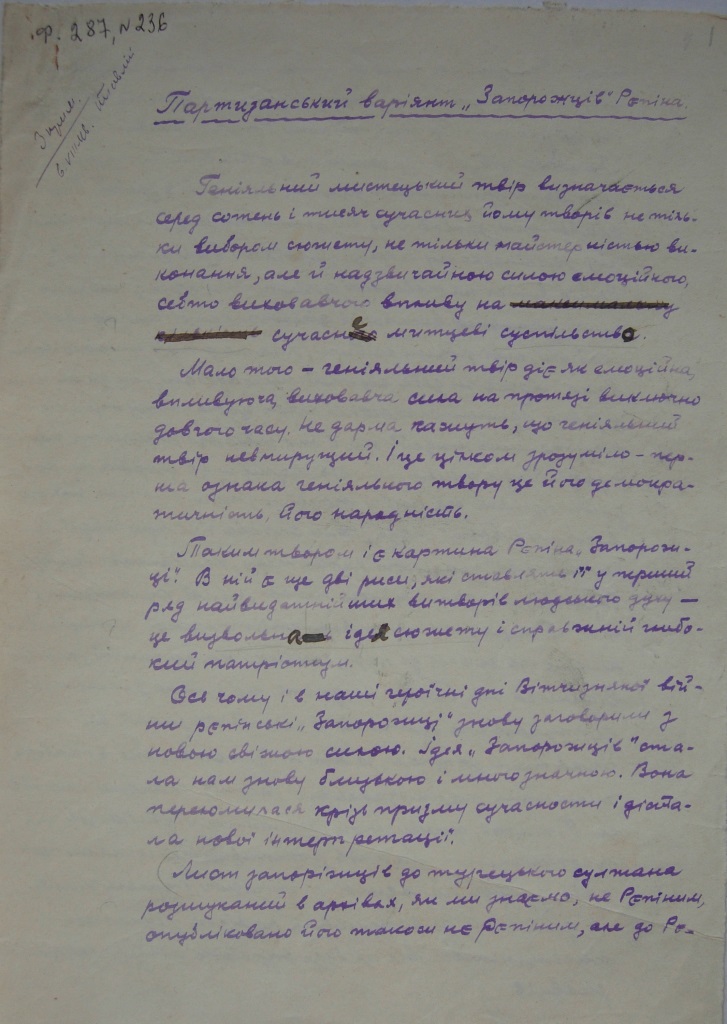 Ф. 287, № 236
Партизанський варіянт „Запорожців" Рєпіна.
Геніяльний мистецький твір визначається
серед сотень і тисяч сучасних йому творів не тіль-
ки вибором сюжету, не тільки майстерністью ви-
конання, але й надзвичайною силою емоційного,
себто виховавчого впливу на
сучасне митцеві суспільство.
Мало того – геніяльний твір діє як емоційна,
впливуюча, виховавча сила на протязі виключно
довгого часу. Не дарма кажуть, що геніяльний
твір невмирущий. І це цілком зрозуміло – пер-
ша ознака геніяльного твору це його демокра-
тичність, його народність.
Таким твором і є картина Рєпіна „Запорож-
ці". В ній є ще дві риси, які ставлять її у перший
ряд найвидатнійших витворів людського духу –
це визвольна ідея сюжету і справжній глибо-
кий патріотизм.
Ось чому і в наші героїчні дні Вітчизняної вій-
ни рєпінські „Запорожці" знову заговорили з
новою свіжою силою. Ідея „Запорожців" ста-
ла нам знову близькою і многозначною. Вона
переломилася крізь призму сучасности і діста-
ла нової інтерпретації.
Лист запоріжців до турецького султана
розшуканий в архівах, як ми знаємо, не Рєпіним,
опубліковано його також не Рєпіним, але до Рє-